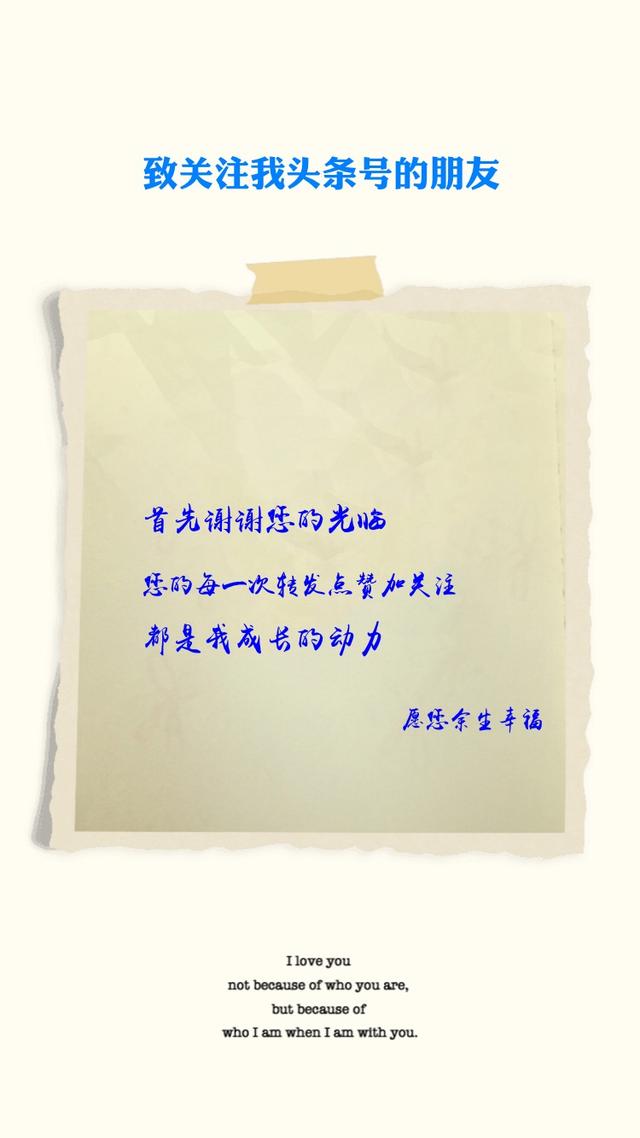 致关注我头条号的朋友
首先谢谢您的光临
您的每一次转发点赞加关注
都是我成长的动力
愿您余生幸福
I love you
not because of who you are,
but because of
who I am when I am with you.